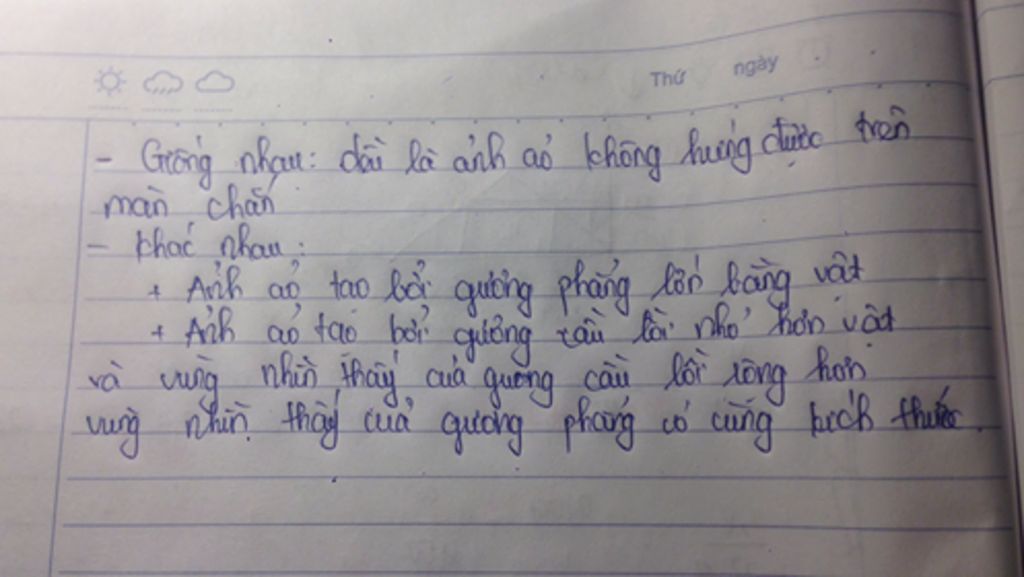 Thứ ngày
- Giống nhau: đều là ảnh ảo không hứng được trên
màn chắn
- Khác nhau:
+ Ảnh ảo tạo bởi gương phẳng lớn bằng vật
+ Ảnh ảo tạo bởi gương cầu lồi nhỏ hơn vật
và vùng nhìn thấy của gương cầu lồi rộng hơn
vùng nhìn thấy của gương phẳng có cùng kích thước.